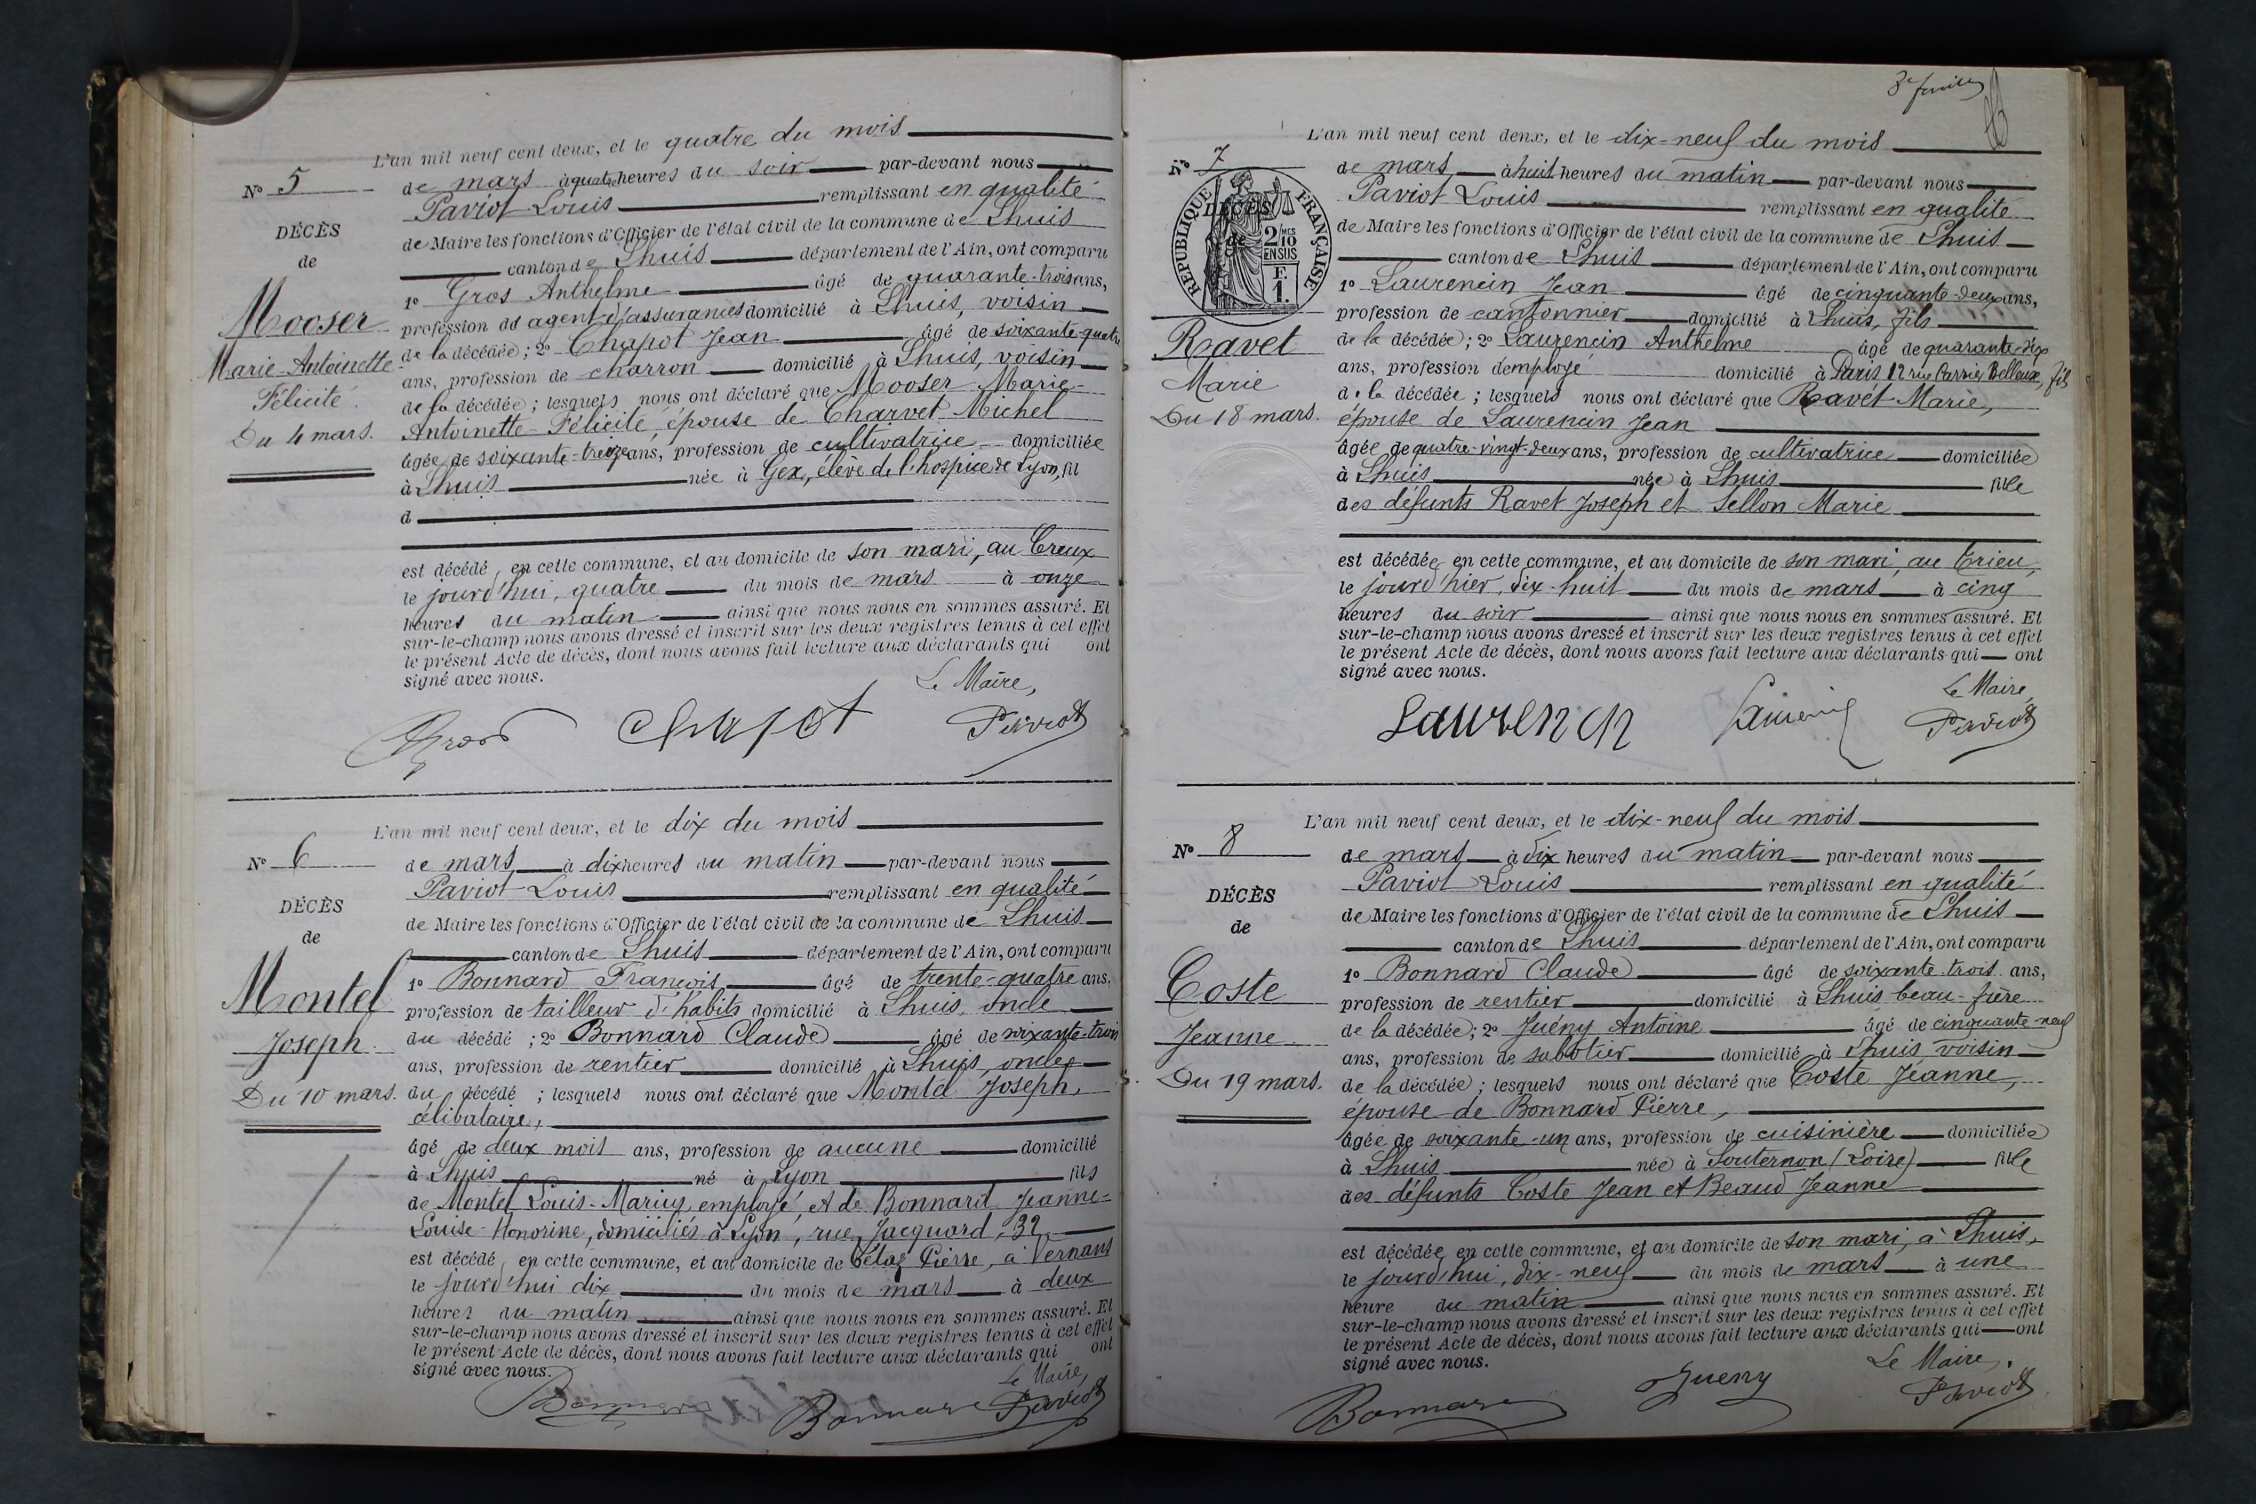 L'an mil neuf cent deux, et le quatre du mois
N° 5
de mars à quatre heures du soir par-devant nous
Paviot Louis remplissant en qualité
DÉCÈS
de Maire les fonctions d'Officier de l'état civil de la commune de Lhuis
de
canton de Lhuis département de l'Ain, ont comparu
1° Gros Anthelme âgé de quarante-trois ans,
Mooser
profession de agent d'assurances domicilié à Lhuis, voisin
de la décédée ; 2° Chapot Jean âgé de soixante-quatre
Marie-Antoinette
ans, profession de charron domicilié à Lhuis, voisin
Félicité
de la décédée ; lesquels nous ont déclaré que Mooser Marie-
Du 4 mars.
Antoinette-Félicité, épouse de Charvet Michel
âgée de soixante-treize ans, profession de cultivatrice domiciliée
à Lhuis née à Gex, élève de l'hospice de Lyon, fil
d
est décédé, en cette commune, et au domicile de son mari, au Creux
le jourd'hui, quatre du mois de mars à onze
heures du matin ainsi que nous nous en sommes assuré. Et
sur-le-champ nous avons dressé et inscrit sur les deux registres tenus à cet effet
le présent Acte de décès, dont nous avons fait lecture aux déclarants qui ont
signé avec nous.
Le Maire,
Gros Chapot Paviot
L'an mil neuf cent deux, et le dix du mois
N° 6
de mars à dix heures du matin par-devant nous
Paviot Louis remplissant en qualité
DÉCÈS
de Maire les fonctions d'Officier de l'état civil de la commune de Lhuis
de
canton de Lhuis département de l'Ain, ont comparu
1° Bonnard François âgé de trente-quatre ans,
Montel
profession de tailleur d'habits domicilié à Lhuis, oncle
Joseph
du décédé ; 2° Bonnard Claude âgé de soixante-trois
ans, profession de rentier domicilié à Lhuis, oncle
Du 10 mars.
du décédé ; lesquels nous ont déclaré que Montel Joseph,
célibataire,
âgé de deux mois ans, profession de aucune domicilié
à Lhuis né à Lyon fils
de Montel Louis-Marius, employé, et de Bonnard Jeanne-
Louise-Honorine, domiciliés à Lyon, rue Jacquard, 32
est décédé, en cette commune, et au domicile de Pierre, à Vernans
le jourd'hui dix du mois de mars à deux
heures du matin ainsi que nous nous en sommes assuré. Et
sur-le-champ nous avons dressé et inscrit sur les deux registres tenus à cet effet
le présent Acte de décès, dont nous avons fait lecture aux déclarants qui ont
signé avec nous.
Le Maire,
Bonnard Bonnard Paviot
3e feuille
L'an mil neuf cent deux, et le dix-neuf du mois
N° 7
de mars à huit heures du matin par-devant nous
Paviot Louis remplissant en qualité
RÉPUBLIQUE FRANÇAISE
DÉCÈS
de
2/10 MES EN SUS
F. 1.
de Maire les fonctions d'Officier de l'état civil de la commune de Lhuis
canton de Lhuis département de l'Ain, ont comparu
1° Laurencin Jean âgé de cinquante-deux ans,
profession de cantonnier domicilié à Lhuis, fils
Ravet
de la décédée ; 2° Laurencin Anthelme âgé de quarante-six
Marie
ans, profession d'employé domicilié à Paris, 12 rue Belleux, fils
de la décédée ; lesquels nous ont déclaré que Ravet Marie,
Du 18 mars.
épouse de Laurencin Jean
âgée de quatre-vingt-deux ans, profession de cultivatrice domiciliée
à Lhuis née à Lhuis fille
des défunts Ravet Joseph et Sellon Marie
est décédée, en cette commune, et au domicile de son mari, au Crieu,
le jourd'hier, dix-huit du mois de mars à cinq
heures du soir ainsi que nous nous en sommes assuré. Et
sur-le-champ nous avons dressé et inscrit sur les deux registres tenus à cet effet
le présent Acte de décès, dont nous avons fait lecture aux déclarants qui ont
signé avec nous.
Le Maire,
Laurencin Laurencin Paviot
L'an mil neuf cent deux, et le dix-neuf du mois
N° 8
de mars à dix heures du matin par-devant nous
Paviot Louis remplissant en qualité
DÉCÈS
de Maire les fonctions d'Officier de l'état civil de la commune de Lhuis
de
canton de Lhuis département de l'Ain, ont comparu
1° Bonnard Claude âgé de soixante-trois ans,
Coste
profession de rentier domicilié à Lhuis beau-frère
Jeanne
de la décédée ; 2° Juény Antoine âgé de cinquante-neuf
ans, profession de sabotier domicilié à Lhuis, voisin
Du 19 mars.
de la décédée ; lesquels nous ont déclaré que Coste Jeanne,
épouse de Bonnard Pierre,
âgée de soixante-un ans, profession de cuisinière domiciliée
à Lhuis née à Souternon (Loire) fille
des défunts Coste Jean et Beaud Jeanne
est décédée, en cette commune, et au domicile de son mari, à Lhuis,
le jourd'hui, dix-neuf du mois de mars à une
heure du matin ainsi que nous nous en sommes assuré. Et
sur-le-champ nous avons dressé et inscrit sur les deux registres tenus à cet effet
le présent Acte de décès, dont nous avons fait lecture aux déclarants qui ont
signé avec nous.
Le Maire,
Bonnard Jueny Paviot